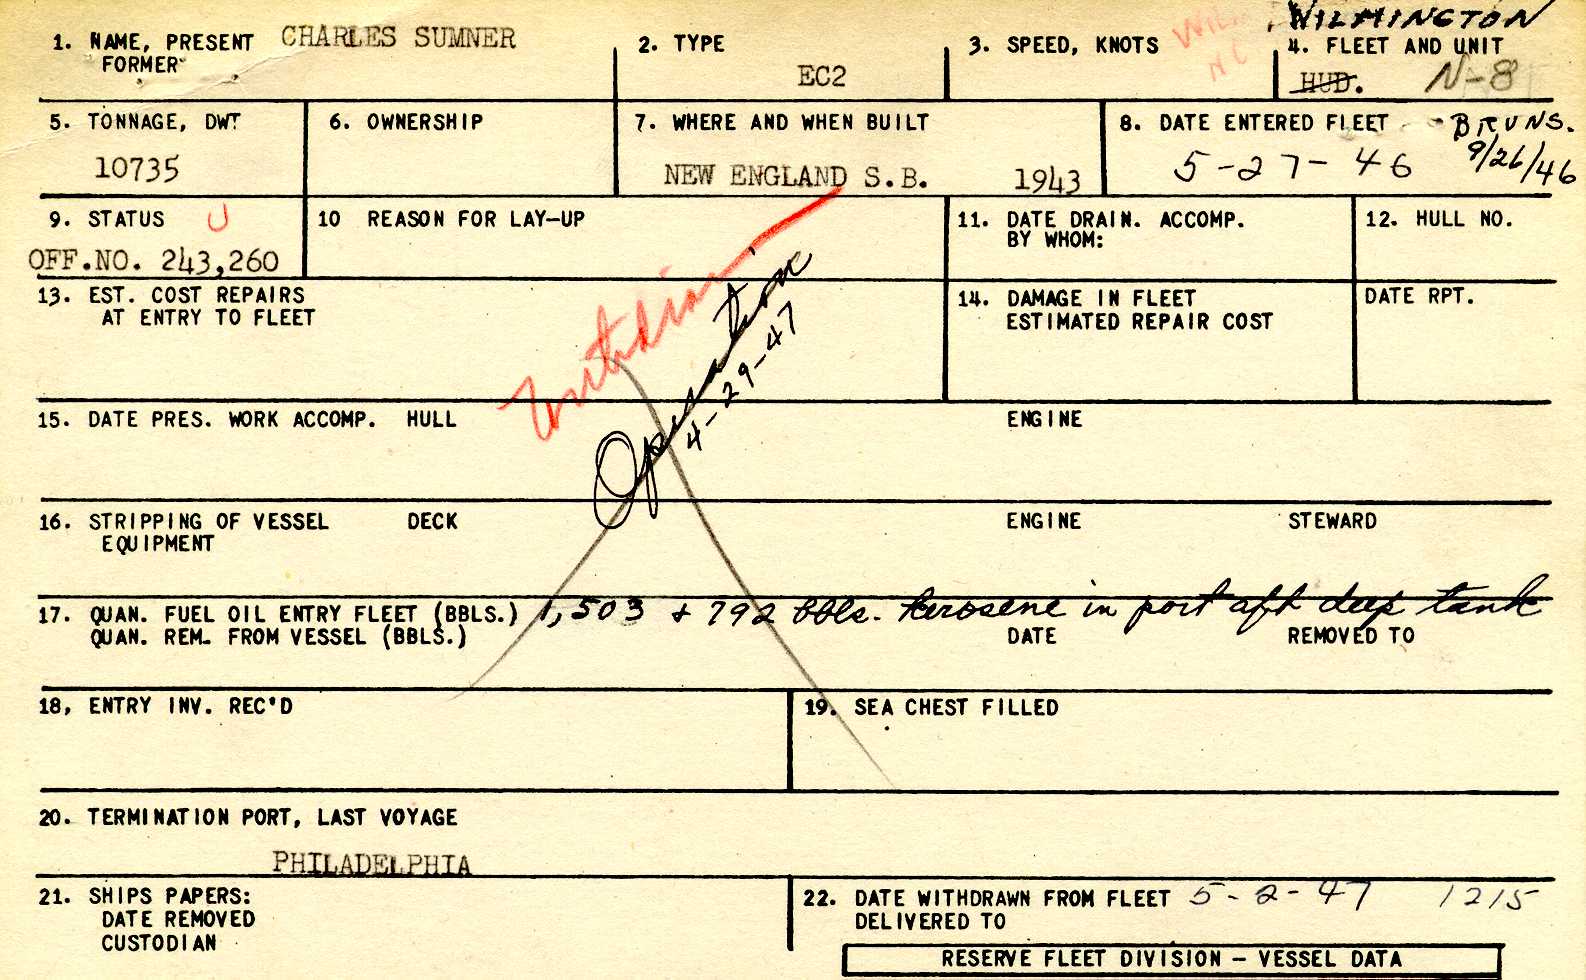 WILMINGTON
1. NAME, PRESENT CHARLES SUMNER
FORMER
2. TYPE
EC2
3. SPEED, KNOTS
4. FLEET AND UNIT
HUD. N-8
5. TONNAGE, DWT
10735
6. OWNERSHIP
7. WHERE AND WHEN BUILT
NEW ENGLAND S.B. 1943
8. DATE ENTERED FLEET BRUNS.
5-27-46 9/26/46
9. STATUS U
OFF.NO. 243,260
10 REASON FOR LAY-UP
11. DATE DRAIN. ACCOMP.
BY WHOM:
12. HULL NO.
13. EST. COST REPAIRS
AT ENTRY TO FLEET
Operation
4-29-47
14. DAMAGE IN FLEET
ESTIMATED REPAIR COST
DATE RPT.
15. DATE PRES. WORK ACCOMP. HULL ENGINE
16. STRIPPING OF VESSEL DECK ENGINE STEWARD
EQUIPMENT
17. QUAN. FUEL OIL ENTRY FLEET (BBLS.) 1,503 + 792 bbls. Kerosene in port aft deep tank
QUAN. REM. FROM VESSEL (BBLS.) DATE REMOVED TO
18, ENTRY INV. REC'D
19. SEA CHEST FILLED
20. TERMINATION PORT, LAST VOYAGE
PHILADELPHIA
21. SHIPS PAPERS:
DATE REMOVED
CUSTODIAN
22. DATE WITHDRAWN FROM FLEET 5-2-47 1215
DELIVERED TO
RESERVE FLEET DIVISION - VESSEL DATA